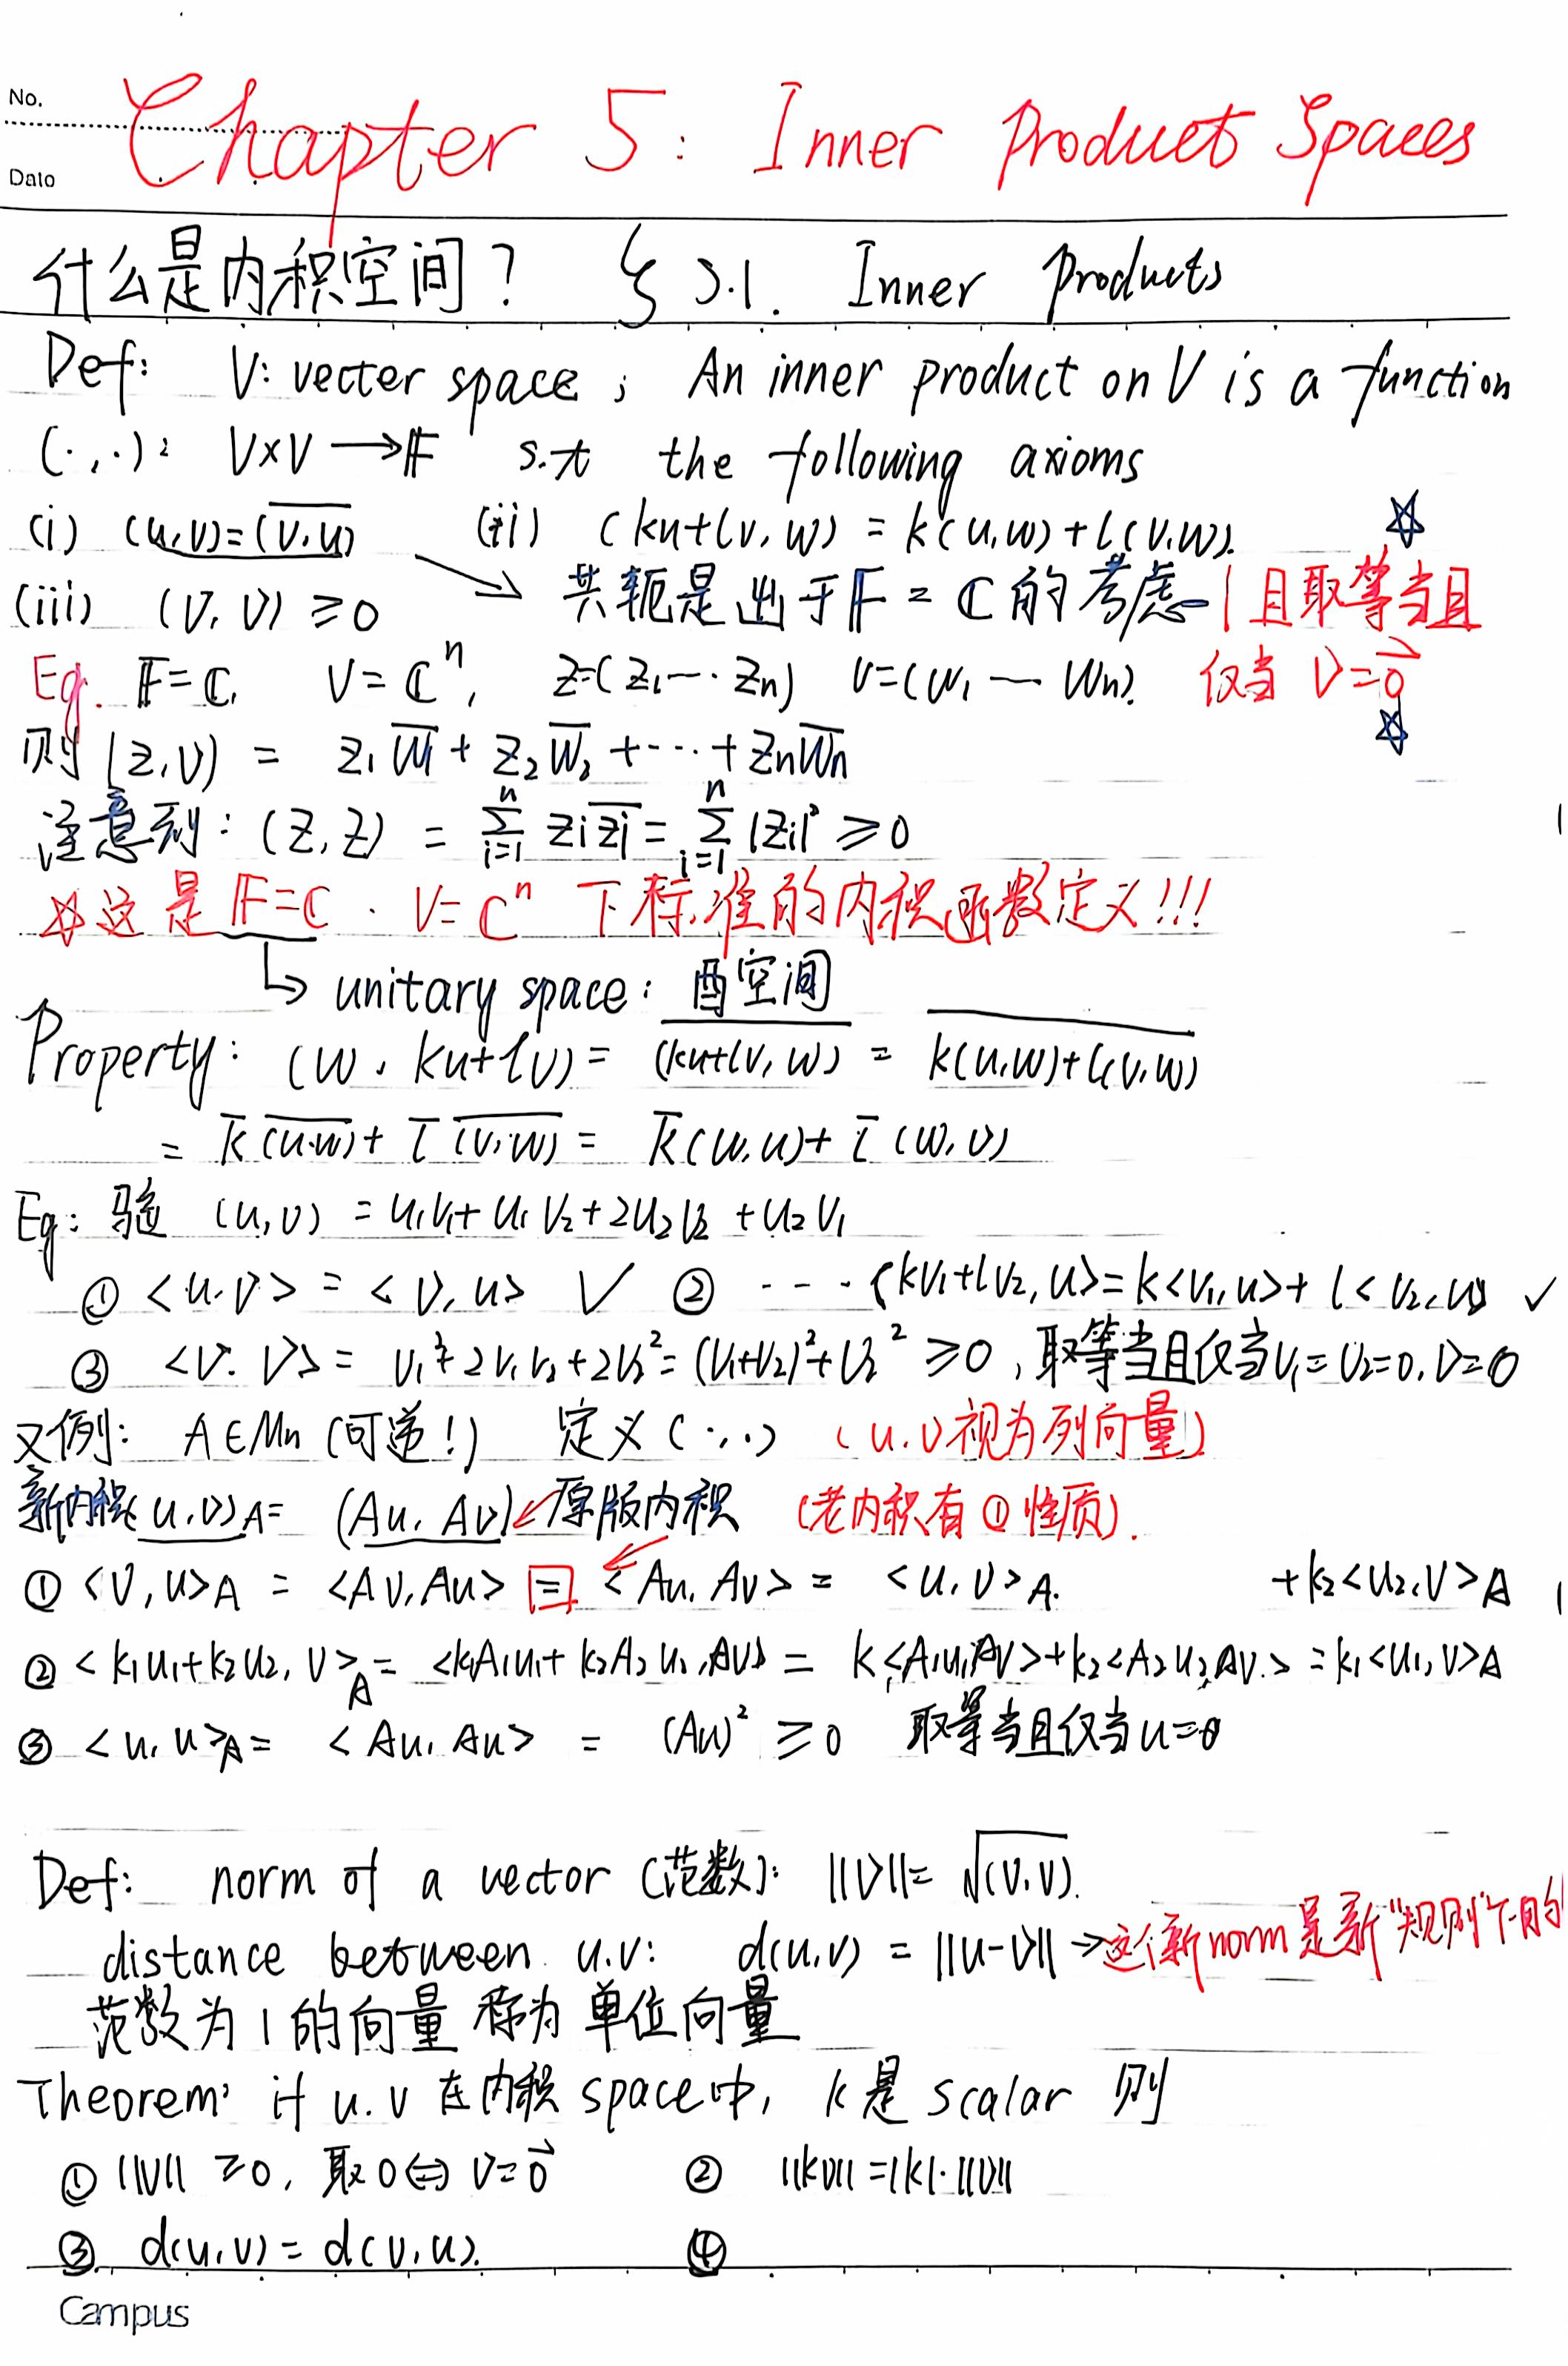 No.
Date
Chapter 5: Inner Product Spaces
什么是内积空间? § 5.1. Inner Products
Def: V: vecter space; An inner product on V is a function
(·,·): V×V→𝔽 s.t the following axioms
(i) (u,v)=\overline{(v,u)} (ii) (ku+lv, w) = k(u,w)+l(v,w). ☆
(iii) (v,v) ≥0 → 共轭是出于𝔽=ℂ的考虑 且取等当且
仅当 v=\vec{0} ☆
Eg. 𝔽=ℂ, V=ℂ^n, z=(z₁⋯zₙ) v=(w₁—wₙ).
则 (z,v) = z₁\overline{w₁} + z₂\overline{w₂} +⋯+ zₙ\overline{wₙ}
注意到: (z,z) = \sum_{i=1}^{n} zᵢ\overline{zᵢ} = \sum_{i=1}^{n} |zᵢ|² ≥0
☆这是 𝔽=ℂ . V=ℂ^n 下标准的内积函数定义!!!
↳ unitary space: 酉空间
Property: (w, ku+lv) = \overline{(ku+lv, w)} = \overline{k(u,w)+l(v,w)}
= \overline{k} \overline{(u,w)} + \overline{l} \overline{(v,w)} = \overline{k}(w,u)+\overline{l}(w,v)
Eg: 验 (u,v) = u₁v₁+u₁v₂+2u₂v₂+u₂v₁
① <u,v> = <v,u> ✓ ② ---- <kv₁+lv₂,u>=k<v₁,u>+l<v₂,u> ✓
③ <v,v> = v₁²+2v₁v₂+2v₂²=(v₁+v₂)²+v₂² ≥0, 取等当且仅当v₁=v₂=0,v=0
又例: A∈Mn (可逆!) 定义(·,·) (u,v视为列向量)
新内积<u,v>A= (Au,Av)←原版内积 (老内积有①性质).
① <v,u>A = <Av,Au> = <Au,Av> = <u,v>A. +k₂<u₂,v>A
② <k₁u₁+k₂u₂, v>A = <k₁A₁u₁+k₂A₂u₂,Av> = k₁<A₁u₁,Av>+k₂<A₂u₂,Av.> =k₁<u₁,v>A
③ <u,u>A = <Au,Au> = (Au)² ≥0 取等当且仅当u=0
Def: norm of a vector (范数): ||v||= √(v,v).
distance between u.v: d(u,v) = ||u-v|| →这个新norm是新“规则”下的
范数为1的向量 称为 单位向量
Theorem: if u.v 在内积 space中, k是 scalar 则
① ||v|| ≥0, 取0⇔v=\vec{0} ② ||kv||=|k|·||v||
③ d(u,v)=d(v,u). ④
Campus